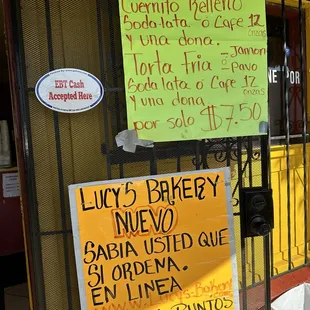 Cuernito Relleno
Soda lata ó Cafe 12
onzas
y una dona.
Torta Fria - Jamon
o pavo
Soda lata ó Cafe 12
onzas
y una dona
por solo $7.50
EBT Cash
Accepted Here
E POR
LUCY'S BAKERY
NUEVO
SABIA USTED QUE
SI ORDENA.
EN LINEA
www.Lucys-Bakery.
PUNTOS